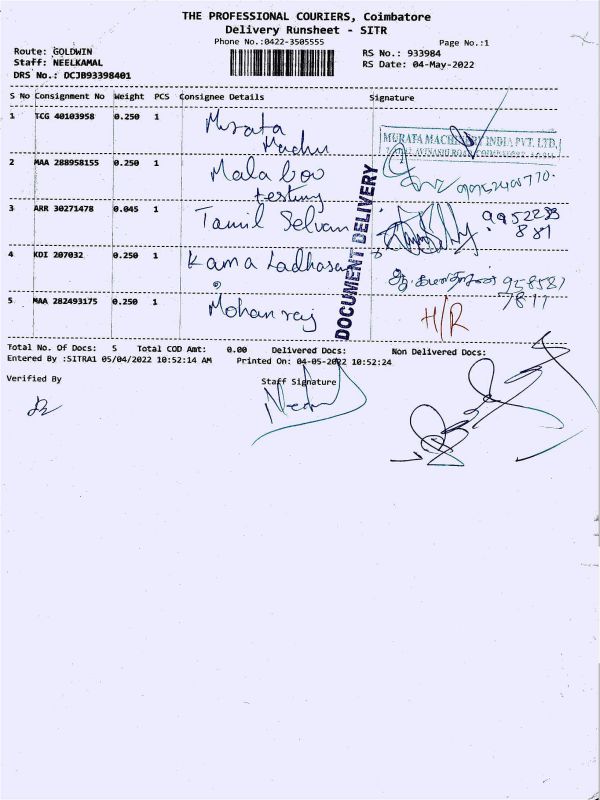 THE PROFESSIONAL COURIERS, Coimbatore
Delivery Runsheet - SITR
Phone No.:0422-3505555
Page No.:1
Route: GOLDWIN
RS No.: 933984
Staff: NEELKAMAL
RS Date: 04-May-2022
DRS No.: DCJB93398401
S No Consignment No Weight PCS Consignee Details Signature
1 TCG 40103958 0.250 1 Murata
Madhu
MURATA MACHINERY INDIA PVT. LTD,
2 MAA 288958155 0.250 1 Mala
testing
DOCUMENT DELIVERY
3 ARR 30271478 0.045 1 Tamil Selvan 9952233
881
4 KDI 207032 0.250 1
5 MAA 282493175 0.250 1 Mohanraj H/R
Total No. Of Docs: 5 Total COD Amt: 0.00 Delivered Docs: Non Delivered Docs:
Entered By :SITRA1 05/04/2022 10:52:14 AM Printed On: 04-05-2022 10:52:24
Verified By
Staff Signature